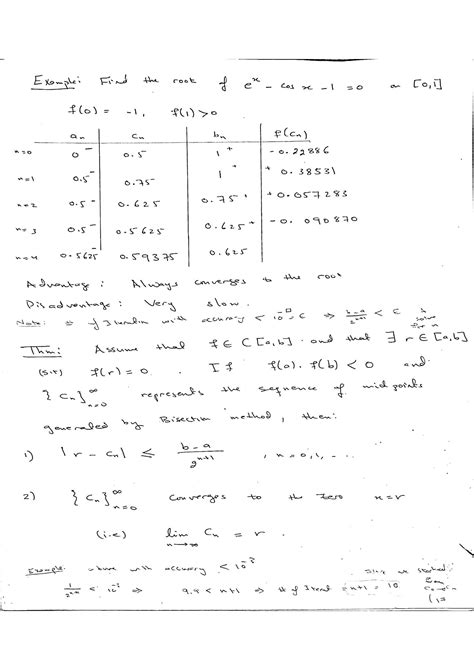 Example: Find the root of e^x - cos x - 1 = 0 on [0,1]
f(0) = -1, f(1) > 0
a_n c_n b_n f(c_n)
n=0 0^- 0.5 1^+ -0.22886
n=1 0.5^- 0.75 1^+ +0.38531
n=2 0.5^- 0.625 0.75^+ +0.057283
n=3 0.5^- 0.5625 0.625^+ -0.090870
n=4 0.5625^- 0.59375 0.625
Advantag: Always converges to the root
Disadvantage: Very slow.
Note: # of Iteration with accuracy < 10^ = C ⇒ (b-a)/2^{n+1} < C
Thm: Assume that f ∈ C[a,b] and that ∃ r ∈ [a,b]
(s.t) f(r) = 0. If f(a).f(b) < 0 and
{C_n}_{n=0}^∞ represents the sequence of midpoints
generated by Bisection method, then:
1) |r - c_n| ≤ (b-a)/2^{n+1}, n = 0,1, ...
2) {C_n}_{n=0}^∞ converges to the zero x=r
(i.e) lim_{n→∞} C_n = r.
Example: with accuracy < 10^{-3} we started
1/2^{n+1} < 10^{-3} ⇒ 9.9 < n+1 ⇒ # of Iterat = n+1 = 10